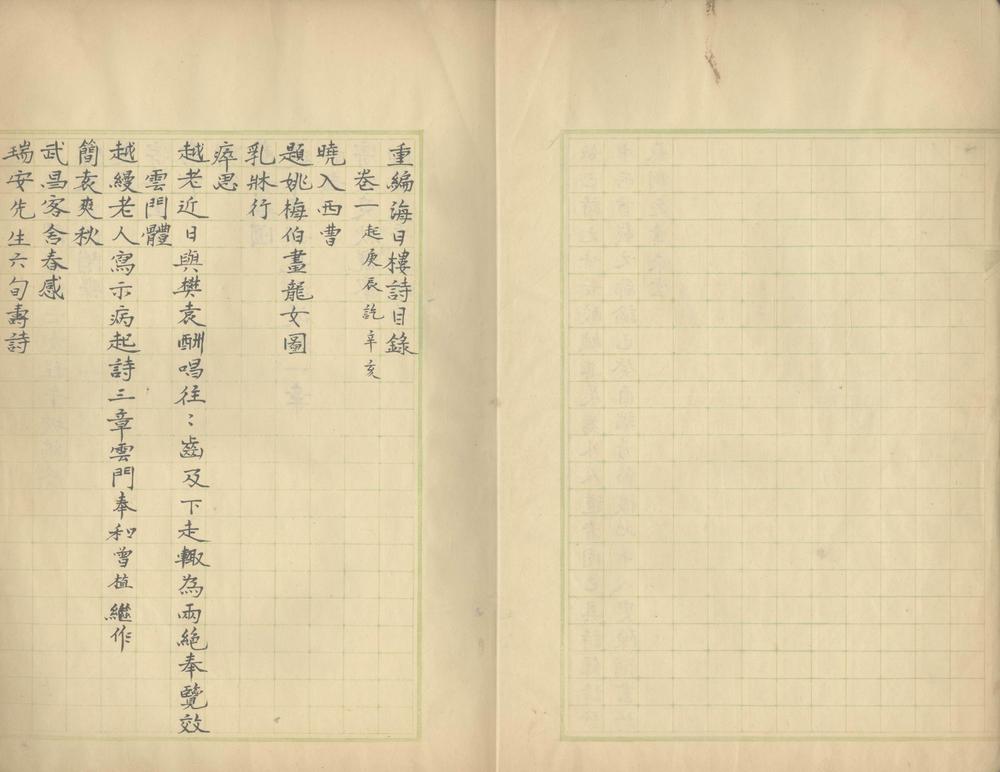 重編海日樓詩目錄
卷一 起庚辰訖辛亥
曉入西曹
題姚梅伯畫龍女圖
乳牀行
瘁思
越老近日與樊袁酬唱往〻齒及下走輙為兩絕奉覽效
雲門體
越縵老人寫示病起詩三章雲門奉和曾植繼作
簡袁爽秋
武昌客舍春感
瑞安先生六旬壽詩